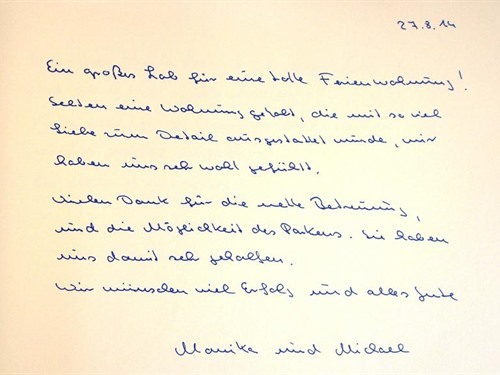 27.8.14
Ein großes Lob für eine tolle Ferienwohnung!
Selten eine Wohnung gehabt, die mit so viel
Liebe zum Detail ausgestattet wurde, wir
haben uns sehr wohl gefühlt.
Vielen Dank für die nette Betreuung,
und die Möglichkeit des Parkens. Sie haben
uns damit sehr geholfen.
Wir wünschen viel Erfolg und alles Gute
Monika und Michael